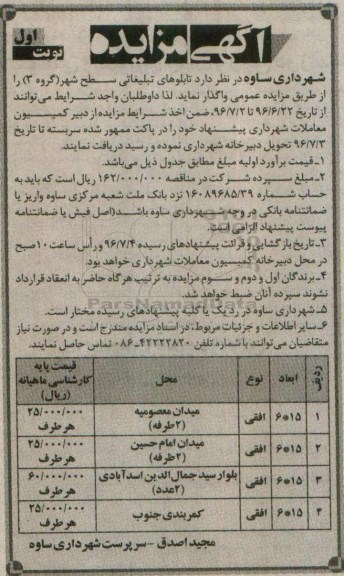 آگهی مزایده
نوبت اول
شهرداری ساوه در نظر دارد تابلوهای تبلیغاتی سطح شهر(گروه ۳) را
از طریق مزایده عمومی واگذار نماید. لذا داوطلبان واجد شرایط می‌توانند
از تاریخ ۹۶/۶/۲۲ تا ۹۶/۷/۲ ضمن اخذ شرایط مزایده از دبیر کمیسیون
معاملات شهرداری پیشنهاد خود را در پاکت ممهور شده سربسته تا تاریخ
۹۶/۷/۳ تحویل دبیرخانه شهرداری نموده و رسید دریافت نمایند.
۱-قیمت برآورد اولیه مبلغ مطابق جدول ذیل می‌باشد.
۲-مبلغ سپرده شرکت در مناقصه ۱۶۲/۰۰۰/۰۰۰ ریال است که باید به
حساب شماره ۱۶۰۸۹۶۸۵/۳۹ نزد بانک ملت شعبه مرکزی ساوه واریز یا
ضمانتنامه بانکی در وجه شهرداری ساوه باشد(اصل فیش یا ضمانتنامه
پیوست پیشنهاد الزامی است.
۳-تاریخ بازگشایی و قرائت پیشنهادهای رسیده ۹۶/۷/۴ و رأس ساعت ۱۰صبح
در محل دبیرخانه کمیسیون معاملات شهرداری خواهد بود.
۴-برندگان اول و دوم و سوم مزایده به ترتیب هرگاه حاضر به انعقاد قرارداد
نشوند سپرده آنان ضبط خواهد شد.
۵-شهرداری ساوه در رد یک یا کلیه پیشنهادهای رسیده مختار است.
۶-سایر اطلاعات و جزئیات مربوط، در اسناد مزایده مندرج است و در صورت نیاز
متقاضیان می‌توانند با شماره تلفن ۴۲۲۲۲۸۲۰-۰۸۶ تماس حاصل نمایند.
ParsNamadData
ردیف ابعاد نوع محل قیمت پایه کارشناسی ماهیانه (ریال)
۱ ۱۵*۶ افقی میدان معصومیه (۲طرفه) ۲۵/۰۰۰/۰۰۰ هر طرف
۲ ۱۵*۶ افقی میدان امام حسین (۲طرفه) ۲۵/۰۰۰/۰۰۰ هر طرف
۳ ۱۵*۶ افقی بلوار سید جمال الدین اسدآبادی (۲عدد) ۶۰/۰۰۰/۰۰۰ هر طرف
۴ ۱۵*۶ افقی کمربندی جنوب ۲۵/۰۰۰/۰۰۰ هر طرف
مجید اصدق - سرپرست شهرداری ساوه